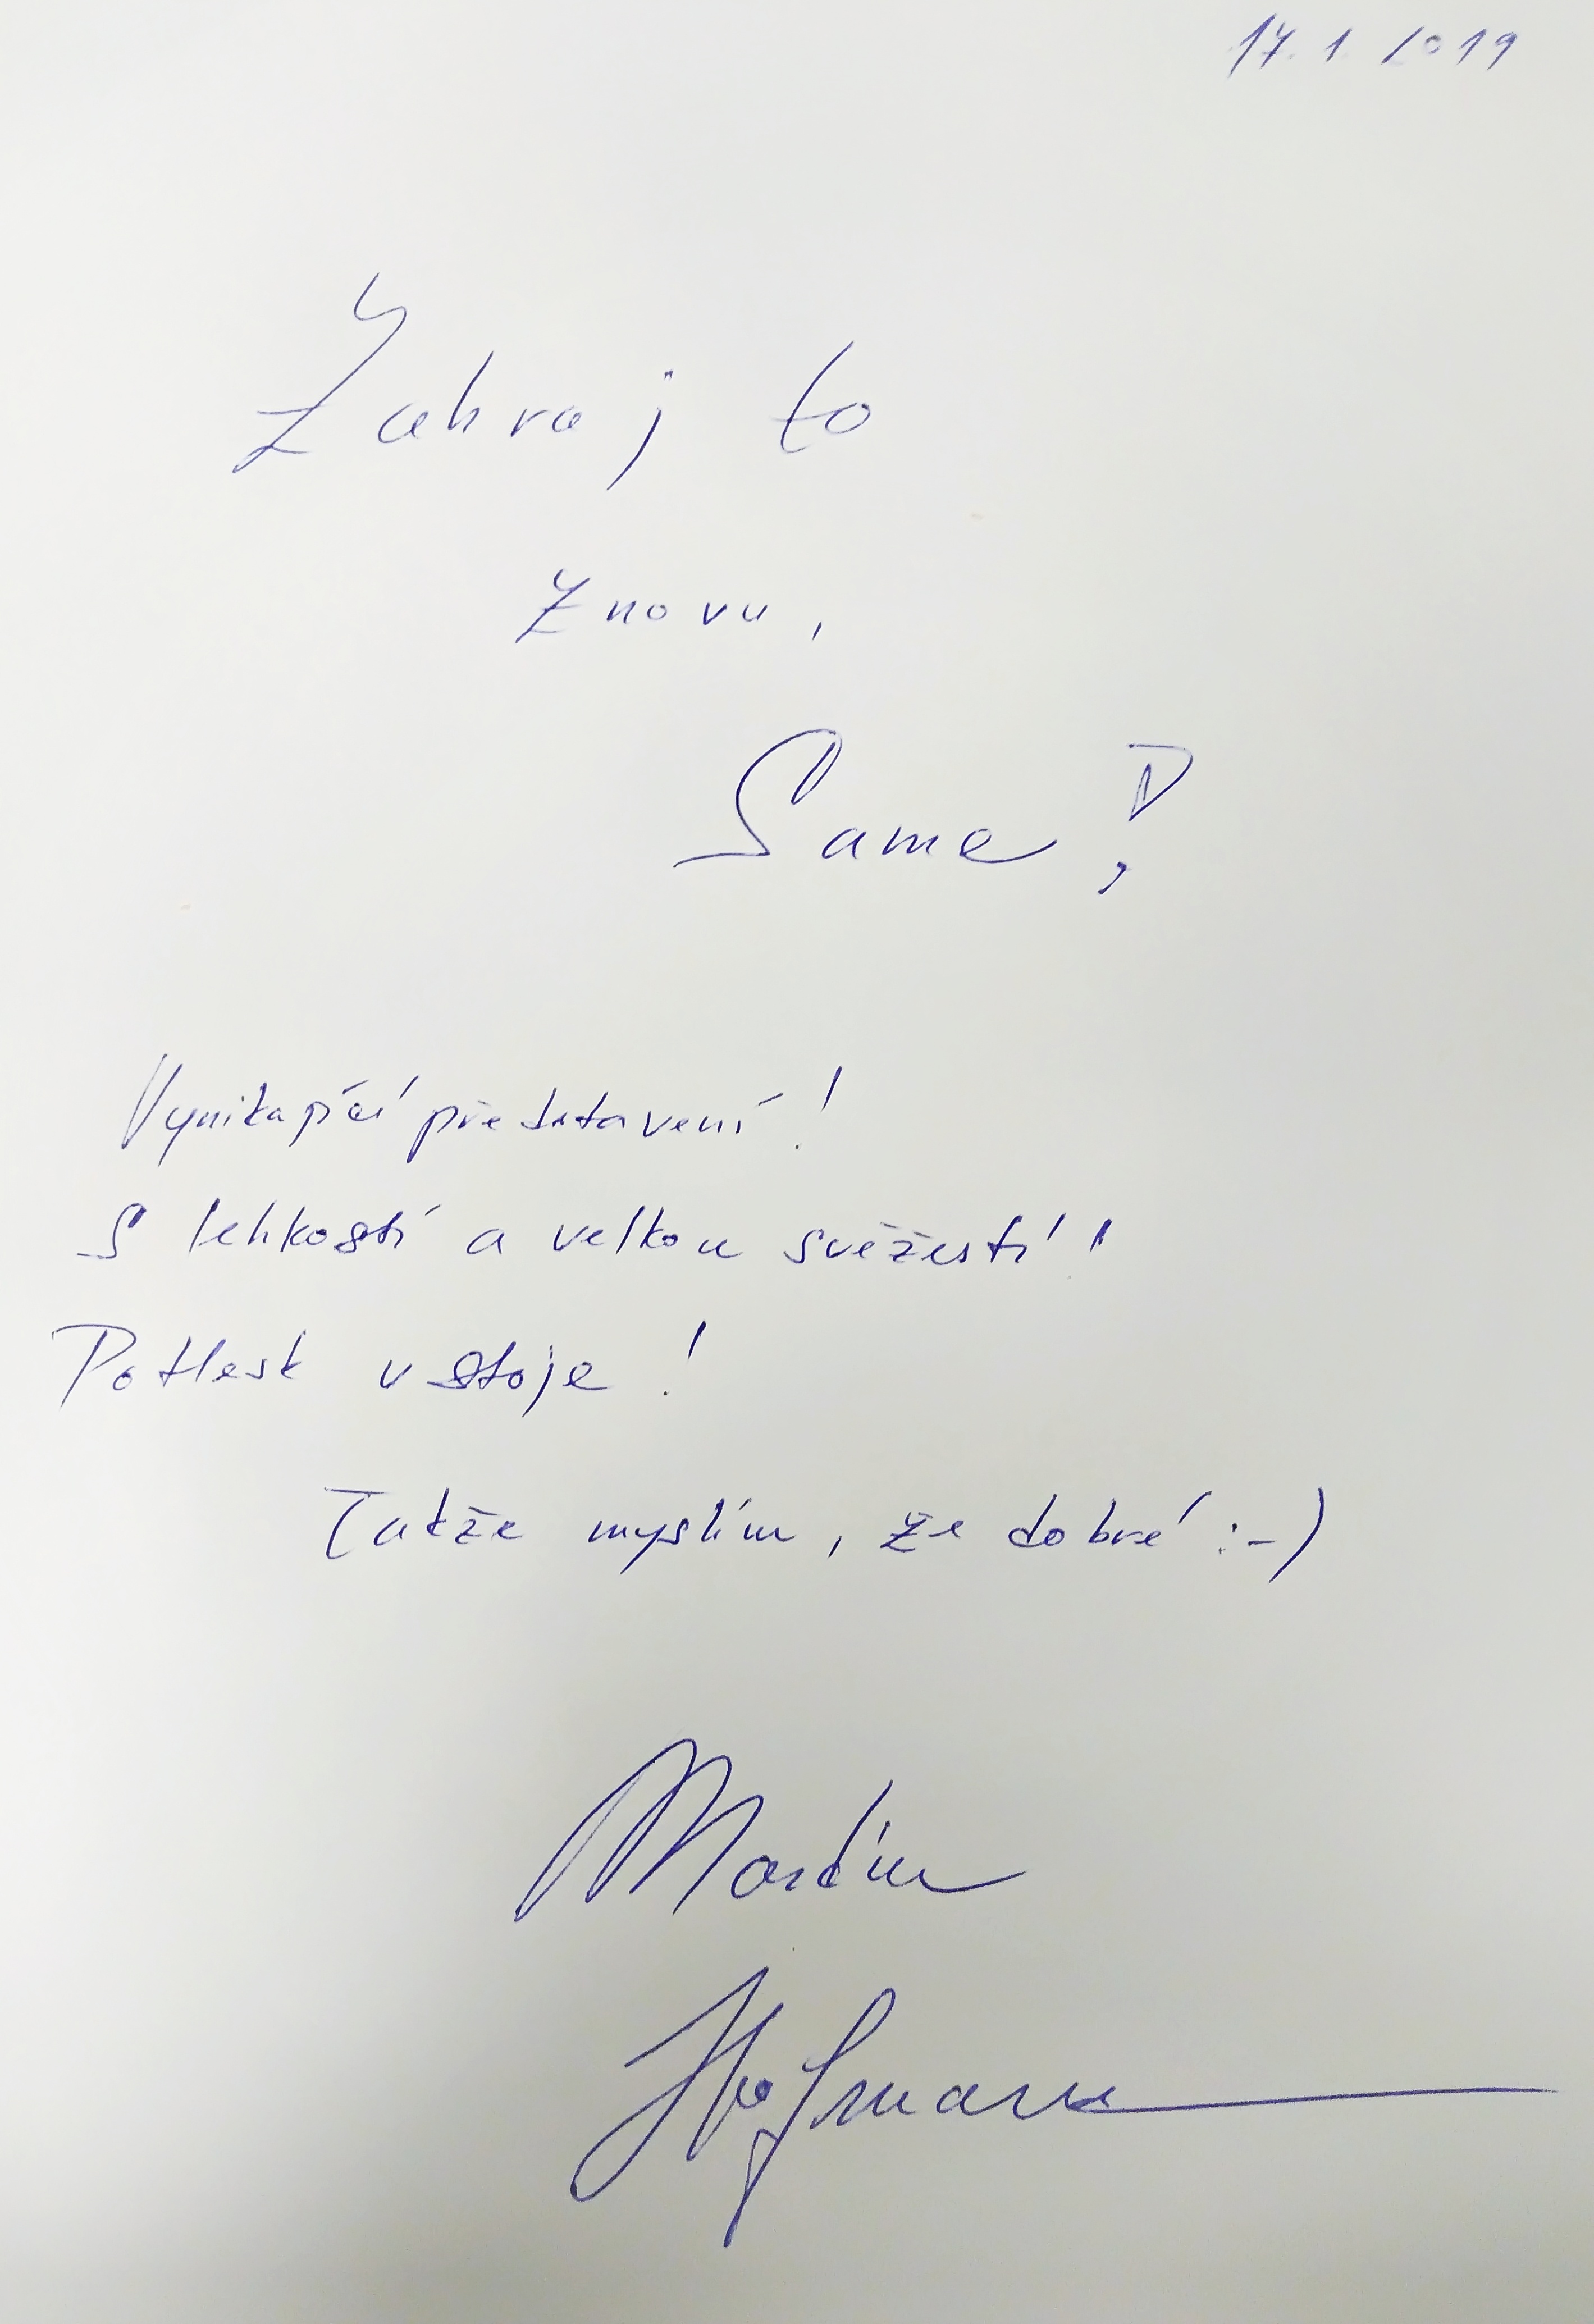 17. 1. 2019
Zahraj to
znovu,
Same!
Vynikající představení!
S lehkostí a velkou svěžestí!
Potlesk vstoje!
Takže myslím, že dobré :-)
Martin
Hofmann